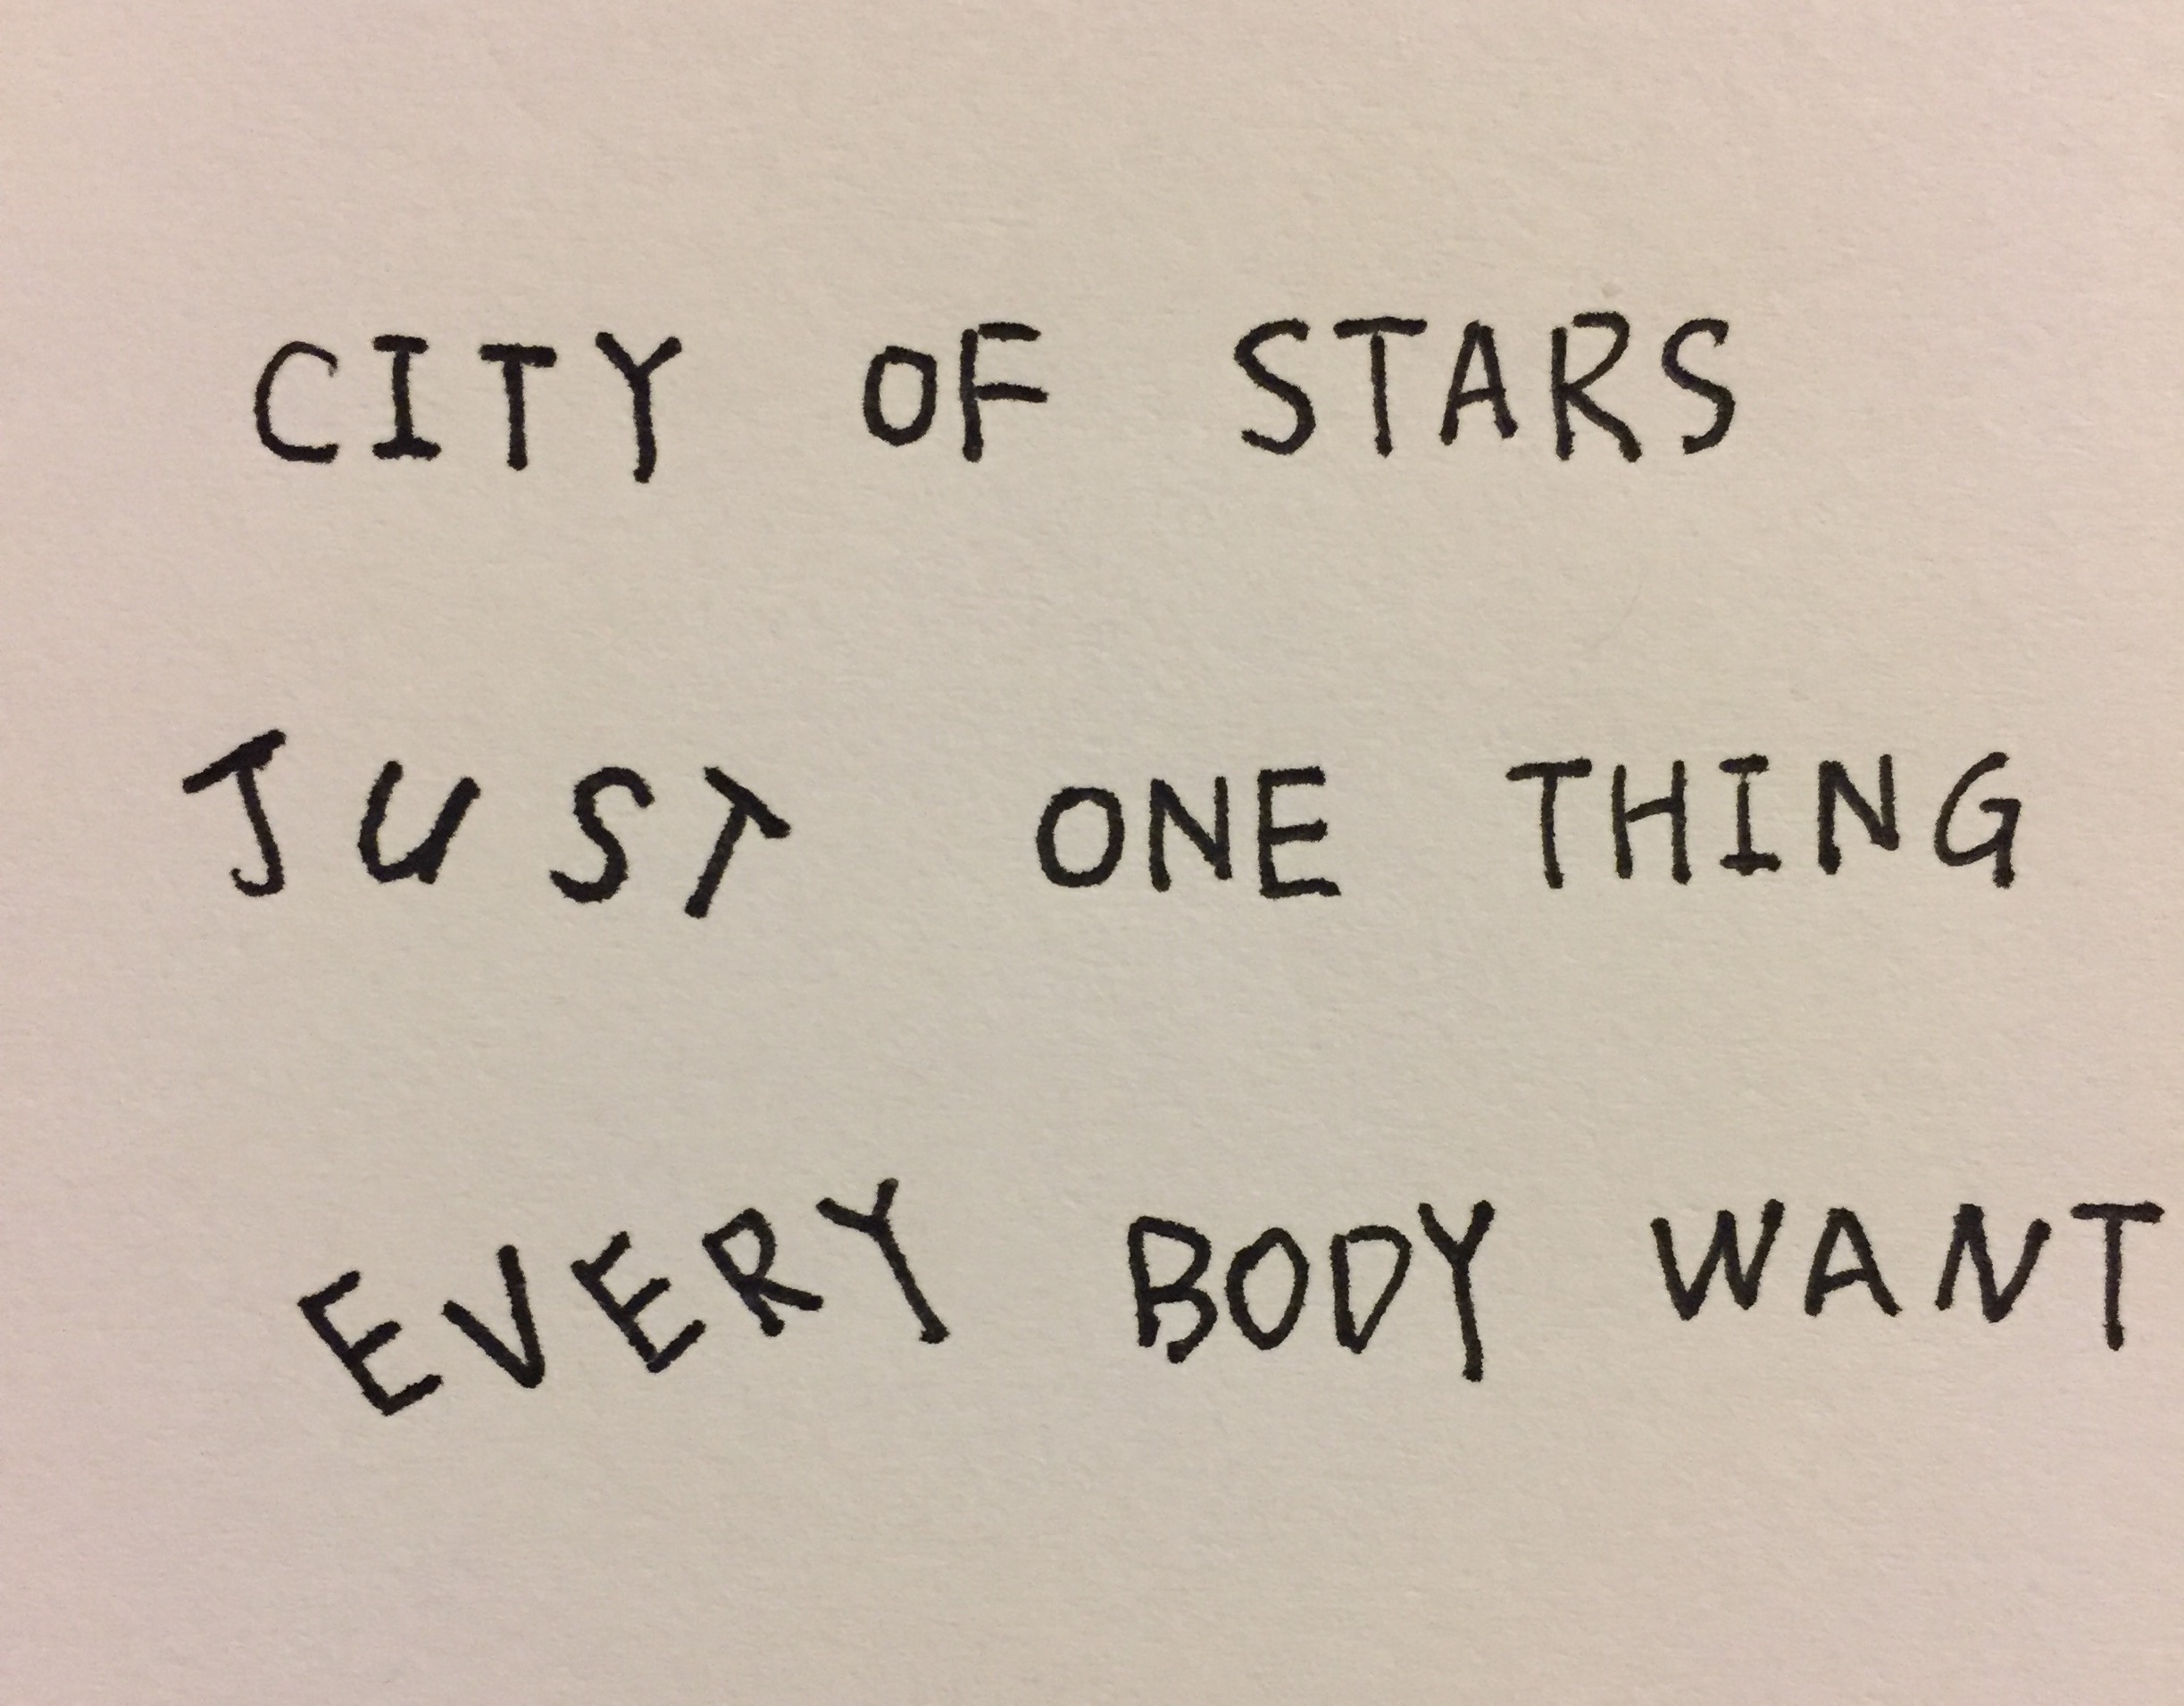 CITY OF STARS
JUST ONE THING
EVERY BODY WANT